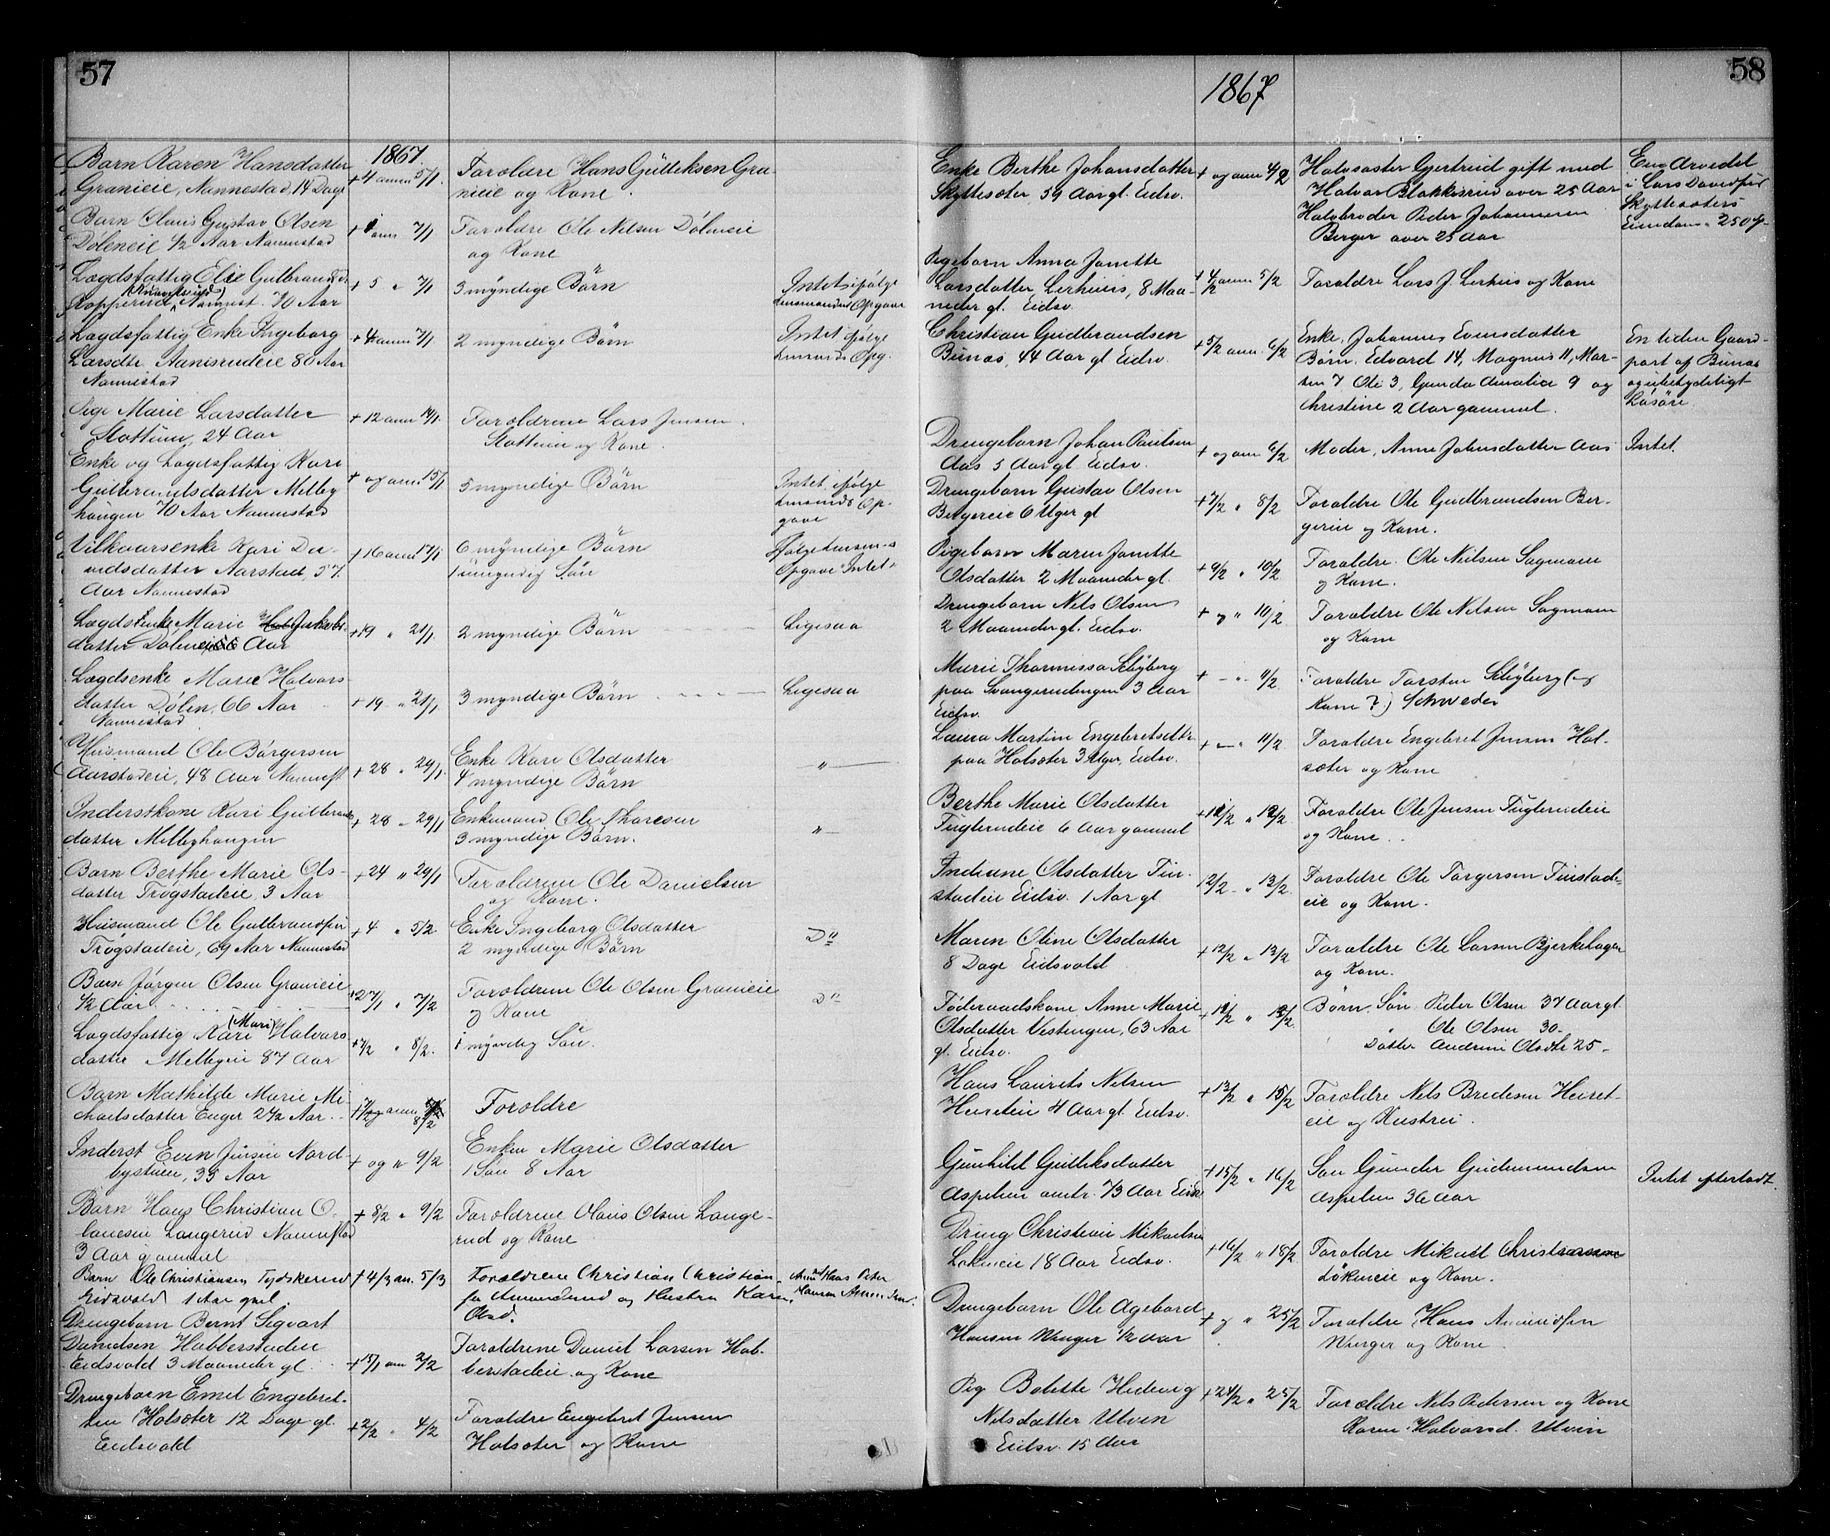 57
1867.
Barn Karen Hansdatter
Granieie, Nannestad, 14 Dage
+ 4 anm 5/1.
Foroldre Hans Gulleksen Gra-
nieie og Kone
Barn Olaus Gustav Olsen
Döleneie 1/2 Aar Nannestad
anm 7/1
Foroldre Ole Nelsen Döleneie
og Kone
Lægdsfattig Elie Gulbrandsd.
Kopperud, Nannest. 70 Aar
+ 5 " 7/1
3 myndige Börn
Intet ifølge
Lensmandens Opgave
Lægdsfattig Enke Ingeborg
Larsdtr. 80 Aar
Nannestad
+ 4 anm 7/1
2 myndige Börn
Intet ifølge
Lensmds Opg.
Pige Marie Larsdatter
Slottum, 24 Aar
+ 12 anm 14/1.
Foroldrene Lars Jensen
Slottum og Kone.
Enke og Lægdsfattig Kari
Gulbrandsdatter Melby
haugen 70 Aar Nannestad
+ og anm. 15/1
5 myndige Börn
Intet ifølge
Lensmds Op-
gave
Vilkaarsenke Kari Da-
vidsdatter Aarstad, 57
Aar Nannestad
+ 16 anm 17/1
6 myndige Börn
1 umyndig Sön
Ifølge Lensm-s
Opgave Intet
Lægdsenke Marie Jakobs-
datter Döleneie Aar
+ 19 " 21/1.
2 myndige Börn
Ligesaa
Lægdsenke Marie Halvors-
datter Dölen, 66 Aar
Nannestad
+ 19 " 21/1
3 myndige Börn
Ligesaa
Husmand Ole Börgersen
Aarstadeie, 48 Aar Nannest
+ 28 " 29/1.
Enke Kari Olsdatter
4 myndige Börn
"
Inderstkone Kari Gulbrands
datter Melbyhaugen
+ 28 - 29/1
Enkemand Ole Thoresen
3 myndige Börn.
"
Barn Berthe Marie Ols-
datter Trögstadeie, 3 Aar
+ 24 " 29/1
Foroldrene Ole Danielsen
og Kone.
Husmand Ole Gulbrandsen
Trögstadeie, 69 Aar Nannestad
+ 4 " 5/2
Enke Ingeborg Olsdatter
2 myndige Börn
Do
Barn Jörgen Olsen Granieie
1/2 Aar
+ 27/1 " 7/2
Foroldrene Ole Olsen Granieie
og Kone
Do
Lægdsfattig Kari (Mari) Halvors
datter Melbyeie 87 Aar
+ 7/2 " 8/2.
1 myndig Sön.
Barn Mathilde Marie Mi-
chaelsdatter Enger 2 1/2 Aar
og anm 8/2
Foroldre
Inderst Even Jensen Nord
bystuen, 33 Aar
+ og " 9/2
Enken Marie Olsdatter
1 Sön 8 Aar
Barn Hans Christian O-
lausen Langerud Nannestad
3 Aar gammel
+ 8/2 " 9/2
Foroldrene Olaus Olsen Lange-
rud og Kone
Barn Ole Christiansen Tydskerud
Eidsvold 1 Aar gml.
+ 4/3 an. 5/3
Forældrene Christian Christian-
og Hustru Karen
Olsd.
Hans Peter
Hansen
Drengebarn Bernt Sigvart
Danielsen Habberstadeie
Eidsvold 3 Maaneder gl.
+ 15/1 anm 2/2
Foroldrene Daniel Larsen Hab-
berstadeie og Kone
Drengebarn Emil Engebret-
sen Holsöter 12 Dage gl.
Eidsvold
+ 2/2 " 4/2
Foroldre Engebret Jensen
Holsöter og Kone
1867
58
Enke Berthe Johansdatter
Skyttesöter, 59 Aar gl. Eidsv.
+ og anm 4/2
Halvsöster Gjertrud gift med
Halvor Blakkisrud over 25 Aar
Halvbroder Peder Johannesen
Berger over 25 Aar
i Lars Davidsen
Skyttesöters
Eiendom
Pigebarn Anna Janette
Larsdatter Lerhuus, 8 Maa-
neder gl. Eidsv.
+ 4/2 anm 5/2
Foroldre Lars J. Lerhus og Kone
Christian Gudbrandsen
Bunæs, 44 Aar gl Eidsv.
+ 5/2 anm. 6/2
Enke, Johanne Evensdatter
Börn. Edvard 14, Magnus 11, Mar-
ten 7 Ole 3, Gunda Amalia 9 og
Christine 2 Aar gammel.
En liden Gaard-
part af Bunæs
og ubetydeligt
Lösöre
Drengebarn Johan Paulsen
Aas 5 Aar gl. Eidsv.
+ og anm 6/2
Moder, Anne Johnsdatter Aas
Intet.
Drengebarn Gustav Olsen
Bergereie 6 Uger gl
+ 7/2 " 8/2
Foroldre Ole Gudbrandsen Ber-
gereie og Kone.
Pigebarn Maren Janette
Olsdatter 2 Maaneder gl.
+ 9/2 " 10/2
Foroldre. Ole Nielsen Sagmoen
og Kone.
Drengebarn Nels Olsen
2 Maaneder gl. Eidsv.
+ og " 10/2
Foroldre Ole Nelsen Sagmoen
og Kone
Marie Thomissa Schyberg
paa Svangerudengen 3 Aar
Eidsv.
+ - " 11/2
Foroldre Torsten Schyberg (og
Kone ?) Schweder
Laura Martine Engebretsdtr.
paa Holsöter 3 Uger, Eidsv.
+ - " 11/2
Foroldre Engebret Jensen Hol-
söter og Kone
Berthe Marie Olsdatter
Fuglerudeie 6 Aar gammel
+ 11/2 " 12/2
Foroldre Ole Jensen Fuglerudeie
og Kone.
Indiane Olsdatter Fin-
stadeie Eidsv. 1 Aar gl
12/2 - " 13/2
Foroldre Ole Torgersen Finstad-
eie og Kone.
Maren Oline Olsdatter
8 Dage Eidsvold
+ 12/2 " 13/2
Foroldre Ole Larsen Bjerkehagen
og Kone.
Föderaadskone Anne Marie
Olsdatter Vestengen, 63 Aar
gl. Eidsv.
Börn. Sön Peder Olsen 37 Aar gl.
" Ole Olsen 30 -
Datter Andrine Olsdtr 25 -
Hans Laurits Nelsen
4 Aar gl. Eidsv.
+ 13/2 " 15/2
Foroldre Nels Bredesen
eie og Hustru.
Gunhild Gulliksdatter
Aspelien omtr. 73 Aar Eidsv
+ 15/2 " 16/2
Sön Gunder Gudmundsen
Aspelien 36 Aar
Intet efterladt.
Dreng Christian Mikaelsen
Lökeneie 18 Aar Eidsv.
+ 16/2 " 18/2
Foroldre Mikael Christiansen
Lökeneie og Kone.
Drengebarn Ole Agebord
Hansen Wenger 1/2 Aar
+ og " 25/2
Foroldre Hans Amundsen
Wenger og Kone.
Pig Bolette Hedevig
Nelsdatter Ulven
Eidsv. 15 Aar
+ 24/2 " 25/2
Foroldre Nels Pedersen og Kone
Karen Halvorsd. Ulvin